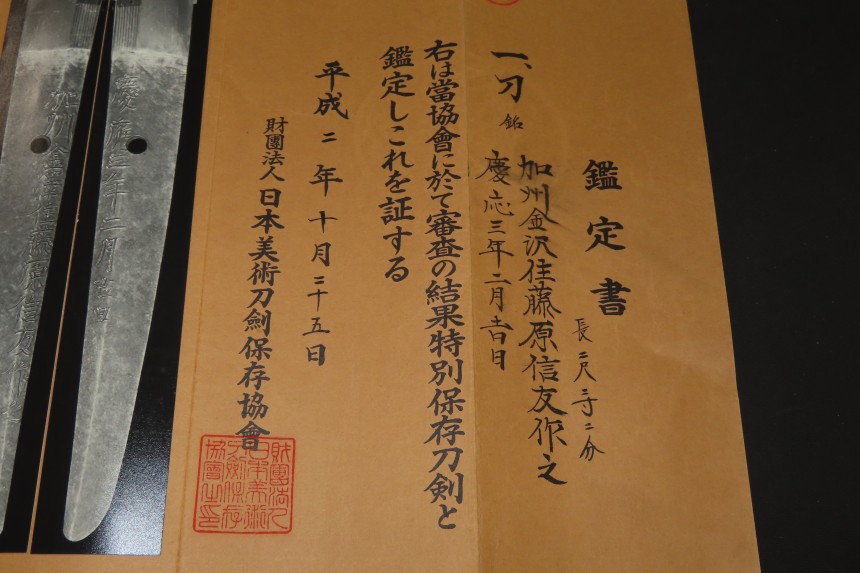 鑑定書
長二尺三寸二分
一、刀 銘 加州金沢住藤原信友作之
慶応三年二月吉日
右は當協會に於て審査の結果特別保存刀剣と
鑑定しこれを証する
平成二年十月二十五日
財團法人日本美術刀劍保存協會
財團法人日本美術刀劍保存協會之印
慶應三年二月吉日